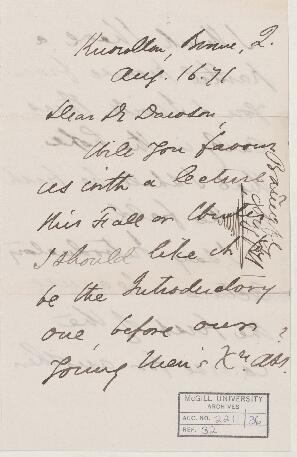 Knowlton, Brome, Q.
Aug. 16. 71
Dear Dr Dawson,
Will you favour
us with a lecture
this Fall or Winter
I should like it
be the Introductory
one, before our
Young Men's Xn. Ass.
McGILL UNIVERSITY
ARCHIVES
ACC. NO. 221 36
REF. 32